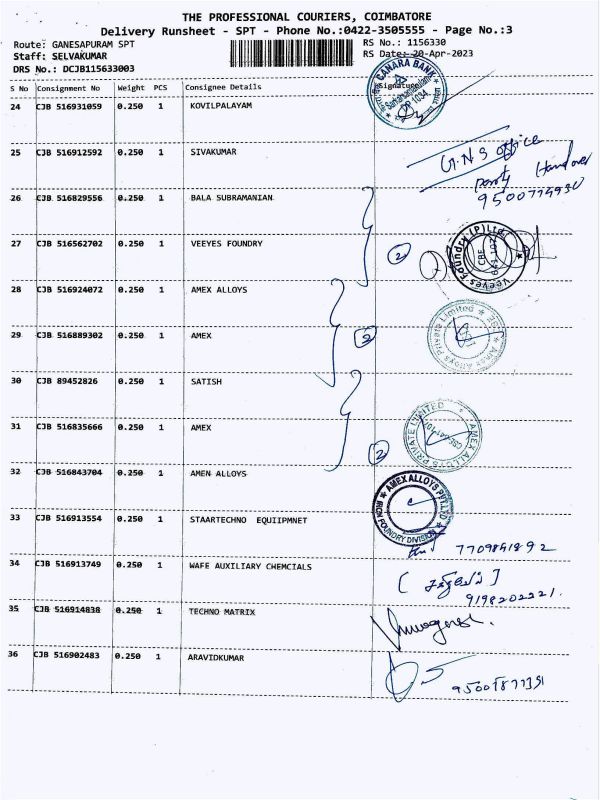 THE PROFESSIONAL COURIERS, COIMBATORE
Delivery Runsheet - SPT - Phone No.:0422-3505555 - Page No.:3
Route: GANESAPURAM SPT
RS No.: 1156330
Staff: SELVAKUMAR
RS Date: 20-Apr-2023
DRS No.: DCJB115633003
S No Consignment No Weight PCS Consignee Details Signature
24 CJB 516931059 0.250 1 KOVILPALAYAM
CANARA BANK
DP 1034
25 CJB 516912592 0.250 1 SIVAKUMAR
G.N.S office
party Handover
26 CJB 516829556 0.250 1 BALA SUBRAMANIAN
27 CJB 516562702 0.250 1 VEEYES FOUNDRY
2
Veeyes Foundry (P) Ltd
CBE
641 107
28 CJB 516924072 0.250 1 AMEX ALLOYS
29 CJB 516889302 0.250 1 AMEX
2
Amex Alloys Private Limited
30 CJB 89452826 0.250 1 SATISH
31 CJB 516835666 0.250 1 AMEX
2
AMEX ALLOYS PRIVATE LIMITED
32 CJB 516843704 0.250 1 AMEN ALLOYS
AMEX ALLOYS PVT LTD
IRON FOUNDRY DIVISION
33 CJB 516913554 0.250 1 STAARTECHNO EQUIIPMNET
7709851892
34 CJB 516913749 0.250 1 WAFE AUXILIARY CHEMCIALS
9198202221.
35 CJB 516914838 0.250 1 TECHNO MATRIX
36 CJB 516902483 0.250 1 ARAVIDKUMAR